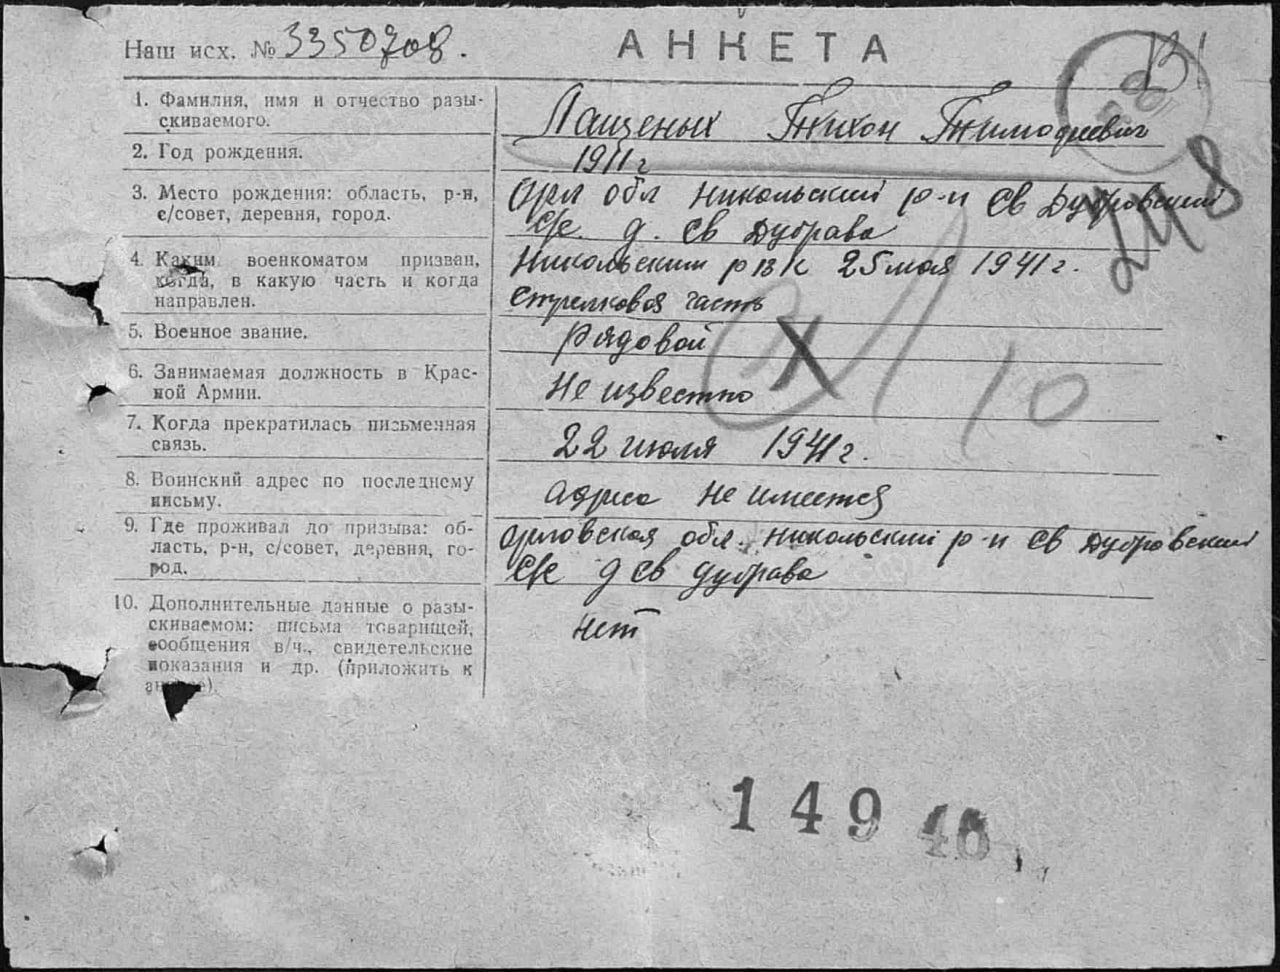 Наш исх. № 3350708.
АНКЕТА
1. Фамилия, имя и отчество разы-
скиваемого.
Лащеных Тихон Тимофеевич
2. Год рождения.
1911 г
3. Место рождения: область, р-н,
с/совет, деревня, город.
Орл обл Никольский р-н Св Дубровский
С/с. д. Св Дубрава
4. Каким военкоматом призван,
когда, в какую часть и когда
направлен.
Никольским р в к 25 мая 1941 г.
стрелковая часть
5. Военное звание.
Рядовой
6. Занимаемая должность в Крас-
ной Армии.
Не известно
7. Когда прекратилась письменная
связь.
22 июля 1941 г.
8. Воинский адрес по последнему
письму.
адреса не имеется
9. Где проживал до призыва: об-
ласть, р-н, с/совет, деревня, го-
род.
Орловская обл. Никольский р-н Св Дубровский
С/с д Св Дубрава
10. Дополнительные данные о разы-
скиваемом: письма товарищей,
сообщения в/ч., свидетельские
показания и др. (приложить к
нет
248
10
149 40